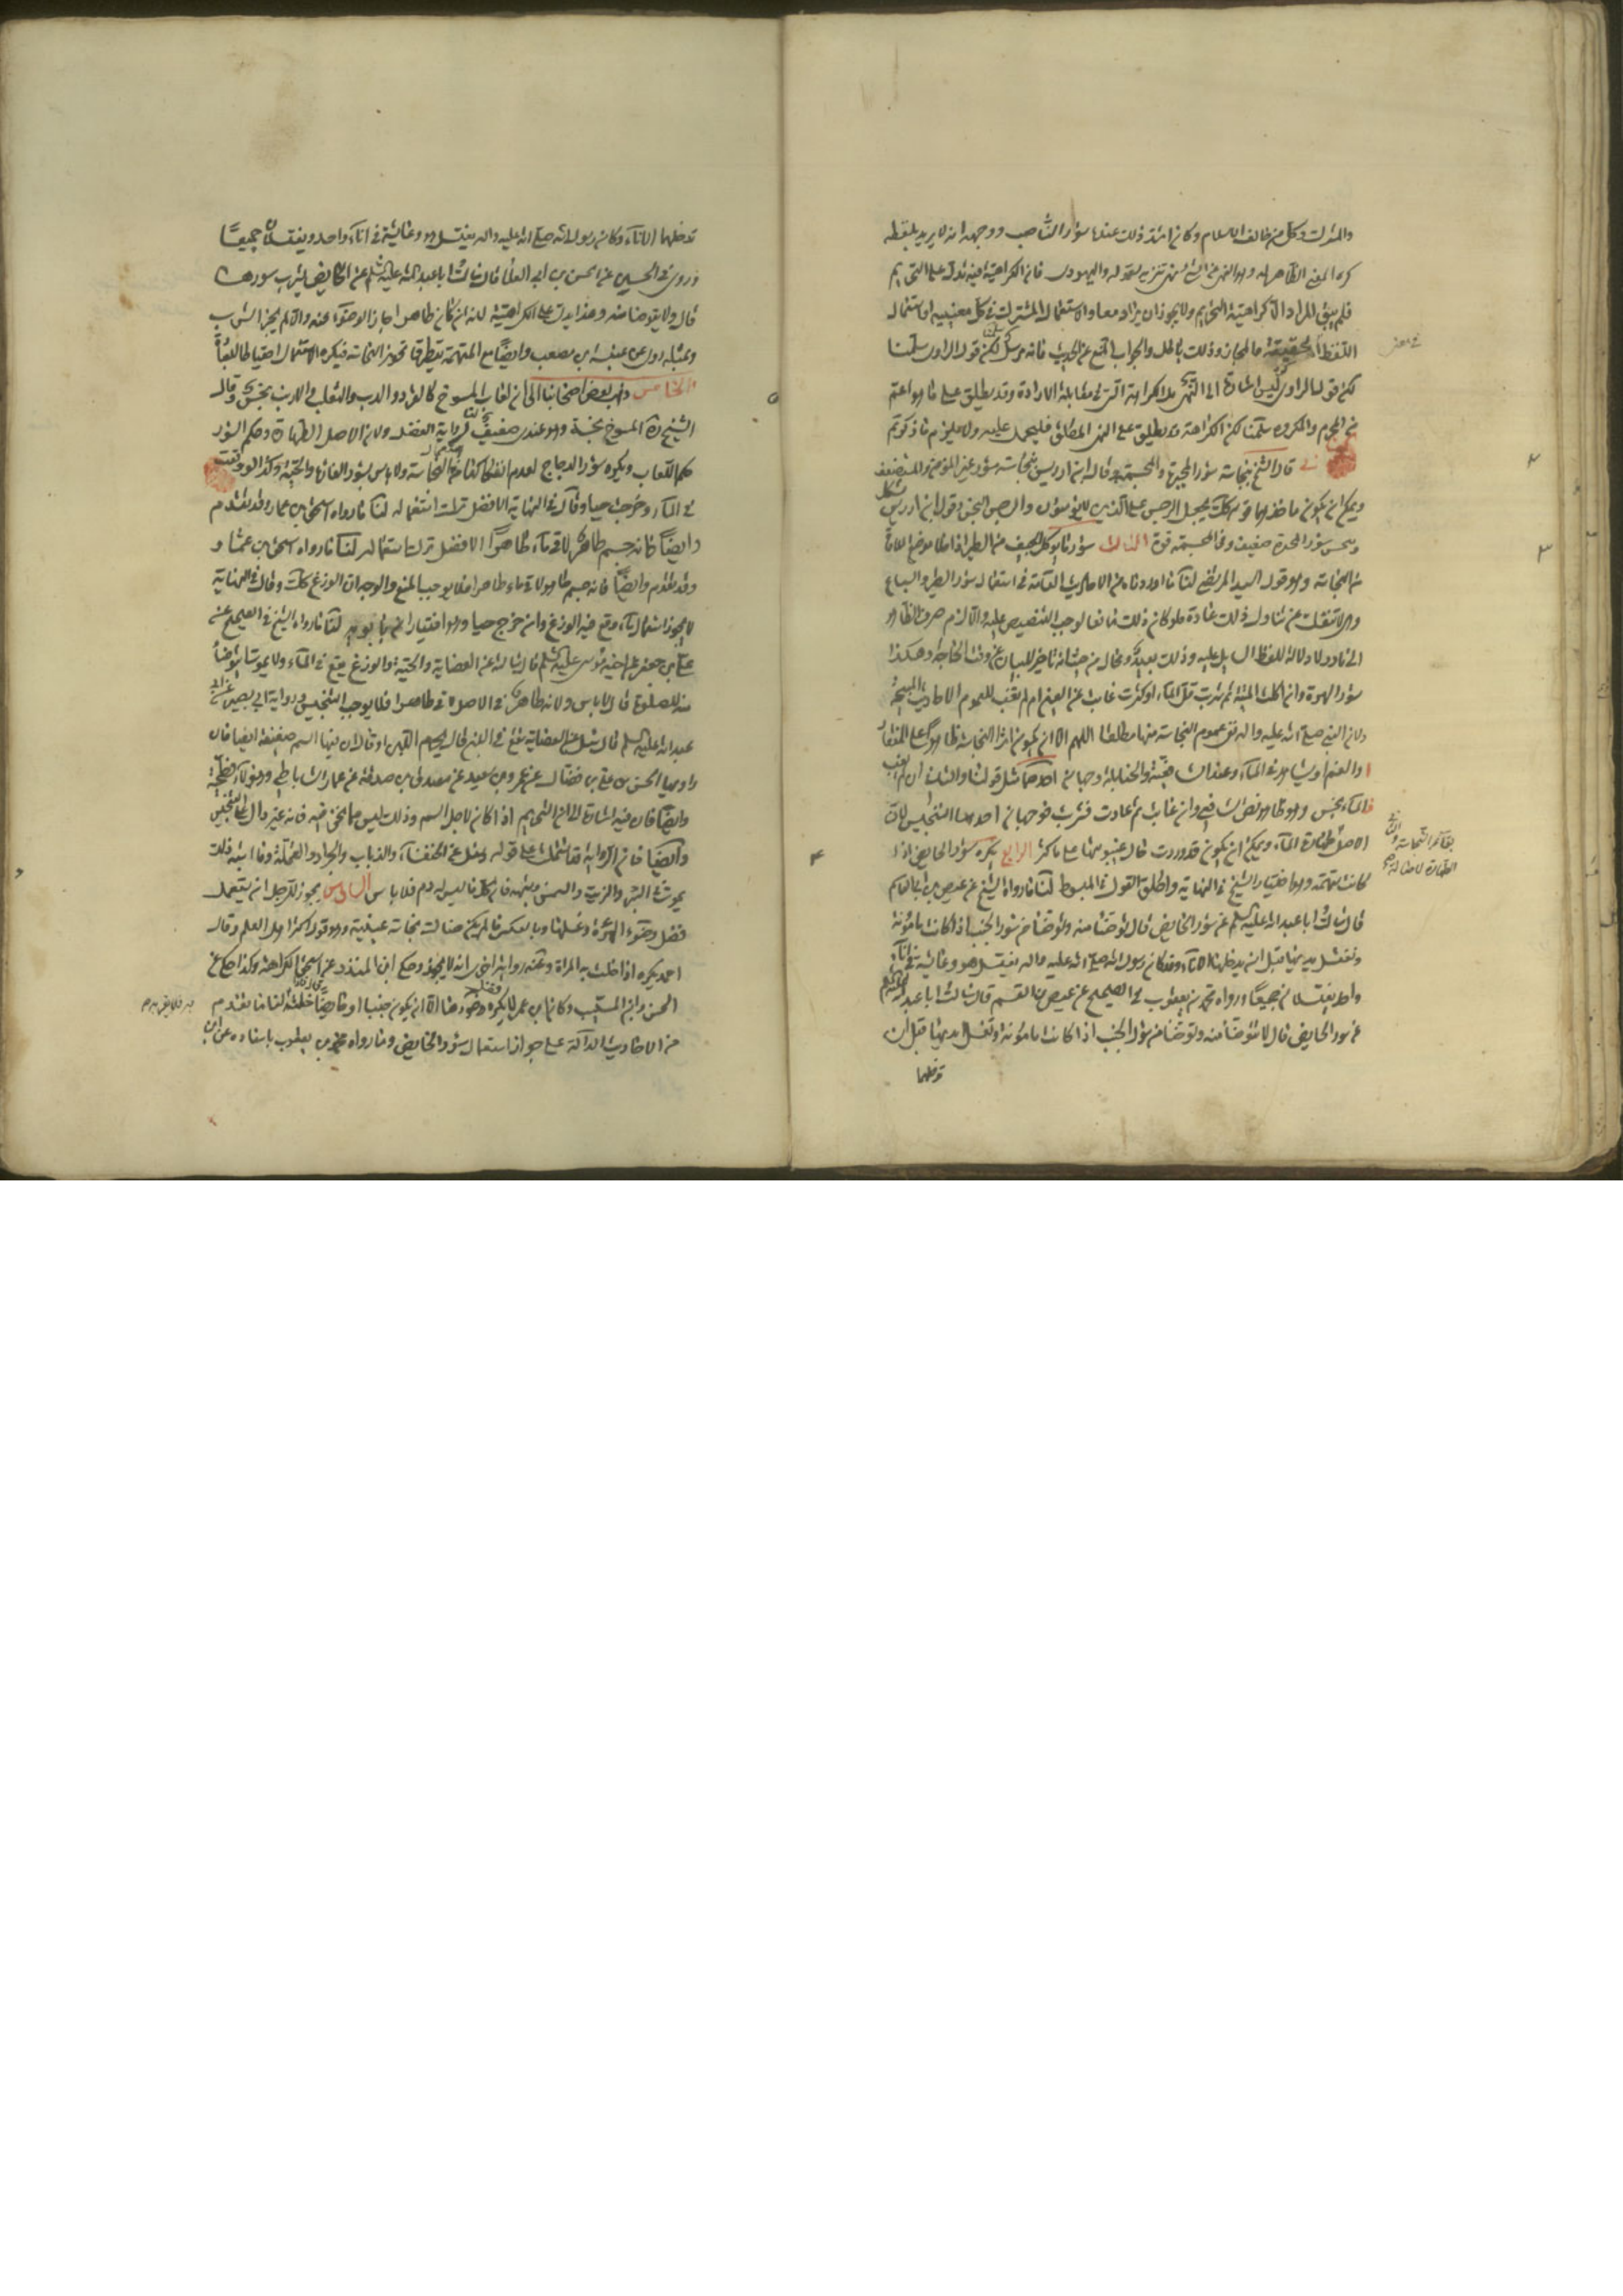 والمشرك وكل من خالف الاسلام وكان اشد ذلك عنده سؤر الناصب ووجهه انه لا يريد بلفظه
كره المعنى الظاهر له وهو النهى عن الشئ نهى تنزيه لقوله واليهودى فان الكراهية فيه تدل على التحريم
فلم يبق المراد الا كراهية التحريم ولا يجوز ان يراد معا والا استعمال المشترك فى كل معنييه او استعمال
اللفظ الحقيقة والمجاز وذلك باطل والجواب المنع عن الحديث فانه مرسل لكن قول الراوى سلمنا
لكن قول الراوى كره ليس اشارة الى النهى بل الكراهة التى فى مقابلة الارادة وقد يطلق على ما هو اعم
من المحرم والمكروه سلمنا لكن الكراهة قد يطلق على النهى المطلق فليحمل عليه ولا يلزم ما ذكرتم
قال الشيخ بنجاسة سؤر المجبرة والمجسمة وقال ابن ادريس بنجاسة سؤر غير المؤمن والمستضعف
ويمكن ان يكون ماخذهما قوله كذلك يجعل الرجس على الذين لا يؤمنون والرجس النجس وقول ابن ادريس مشكل
وتنجيس سؤر المجبرة ضعيف وفى المجسمة قوة الثالث سؤر ما يوكل الجيف من الطير اذا خلا موضع الملاقاة
من النجاسة وهو قول السيد المرتضى لنا ما اوردناه من الاحاديث العامة فى استعمال سؤر الطير والسباع
وهى لا تنفك عن تناول ذلك عادة فلو كان ذلك مانعا لوجب التنصيص عليه والا لزم صرف الظاهر
الى نادر لا دلالة للفظ السابل عليه وذلك بعيد ومحال من حيث انه تاخير للبيان عن وقت الحاجة وهكذا
سؤر الهرة وان اكلت الميتة ثم شربت قل الماء او كثر غابت عن العين ام لم تغب للعموم الاحاديث المبيحة
ولان النبى صلى الله عليه واله نفى عموم النجاسة منها مطلقا اللهم الا ان يكون اثر النجاسة ظاهرا على المنقار
او الفم او يشاهد فى الماء وعند الشافعية والحنابلة وجهان احدهما مثل قولنا والثانى ان لم تغب
فالماء نجس وهو ظاهر نص الشافعى وان غابت ثم عادت فشربت فوجهان احدهما التنجيس لان
الاصل طهارة الماء ويمكن ان يكون قد وردت حال غيبوبتها على ماء كثير الرابع يكره سؤر الحايض اذا
كانت متهمة وهو اختيار الشيخ فى النهاية واطلق القول فى المبسوط لنا ما رواه الشيخ عن عيص بن القاسم
قال سالت ابا عبد الله عليه السلم عن سؤر الحايض قال توضأ منه وتوضأ من سؤر الجنب اذا كانت مامونة
وتغسل يديها قبل ان يدخلها الاناء وقد كان رسول الله صلى الله عليه واله يغتسل هو وعائشة فى اناء
واحد يغتسلان جميعا ورواه محمد بن يعقوب فى الصحيح عن عيص بن القسم قال سالت ابا عبد الله عليه السلم
عن سؤر الحايض قال لا توضأ منه وتوضأ من سؤر الجنب اذا كانت مامونة وتغسل يديها قبل ان
تدخلها
تدخلهما الاناء وكان رسول الله صلى الله عليه واله يغتسل هو وعائشة فى اناء واحد ويغتسلان جميعا
وروى فى الحسين بن ابى العلا قال سالت ابا عبد الله عليه السلم عن الحايض يشرب سورها
قال ولا يتوضا منه وهذا يدل على الكراهية لانه ان كان طاهرا جاز الوضوء منه والا لم يجز الشرب
وبمثله روى عن عنبسة بن مصعب وايضا مع التهمة يتطرق تجويز النجاسة فيكره الاستعمال احتياطا للعبادة
الخامس ذهب بعض اصحابنا الى ان لعاب المسوخ كالقرد والدب والثعلب والارنب نجس وقال
الشيخ ره المسوخ نجسة وهو عندى ضعيف لنا رواية الفضل ولان الاصل الطهارة وحكم السؤر
حكم اللعاب ويكره سؤر الدجاج لعدم انفكاكها من النجاسة ولا باس بسؤر الفارة والحية وكذا لو وقعت
فى الماء وخرجت حيا وقال فى النهاية الافضل ترك استعماله لنا ما رواه اسحق بن عمار وقد تقدم
وايضا فانه جسم طاهر لاقى ماء طاهرا الافضل ترك استعماله لنا ما رواه اسحق بن عمار
وقد تقدم وايضا فانه جسم طاهر لاقى ماء طاهرا فلا يوجب المنع والوجه ان الوزغ كذلك وقال فى النهاية
لا يجوز استعمال ماء وقع فيه الوزغ وان خرج حيا وهو اختيار ابن بابويه لنا ما رواه الشيخ فى الصحيح عن
على بن جعفر عن اخيه موسى عليه السلم قال سالته عن العضاية والحية والوزغ يقع فى الماء ولا يموت ايتوضا
منه للصلوة قال لا باس ولانه طاهر فى الاصل لاقى طاهرا فلا يوجب التنجيس ورواية ابى بصير عن ابى
عبد الله عليه السلم قال سئل عن العضاية تقع فى اللبن قال يحرم اللبن وقال ان فيها السم ضعيفة ايضا فان
راويها الحسن بن على بن فضال عن عمرو بن سعيد عن مصدق بن صدقة عن عمار الساباطى وهؤلاء فطحية
وايضا فان فيه اشارة الى ان التحريم اذا كان لاجل السم وذلك ليس مما نحن فيه فانه غير دال على التنجيس
وايضا فان الرواية قد اشتملت على قوله وسئل عن الخنفساء والذباب والجراد والنملة وما اشبه ذلك
يموت فى البئر والزيت والسمن وشبهه قال كل ما ليس له دم فلا باس السادس يجوز للرجل ان يستعمل
فضل وضوء المرءة وغسلها وبالعكس ما لم يكن هناك نجاسة عينية وهو قول اكثر اهل العلم وقال
احمد يكره اذا خلت به المراة وعنه رواية اخرى انه لا يجوز وحكى ابن المنذر عن اسحق الكراهة وكذا حكى عن
الحسن وابن المسيب وكان ابن عمر لا يكره فضل وضوءها الا ان يكون جنبا او حايضا لنا ما تقدم
من الاحاديث الدالة على جواز استعمال سؤر الحايض وما رواه محمد بن يعقوب باسناده عن ابن